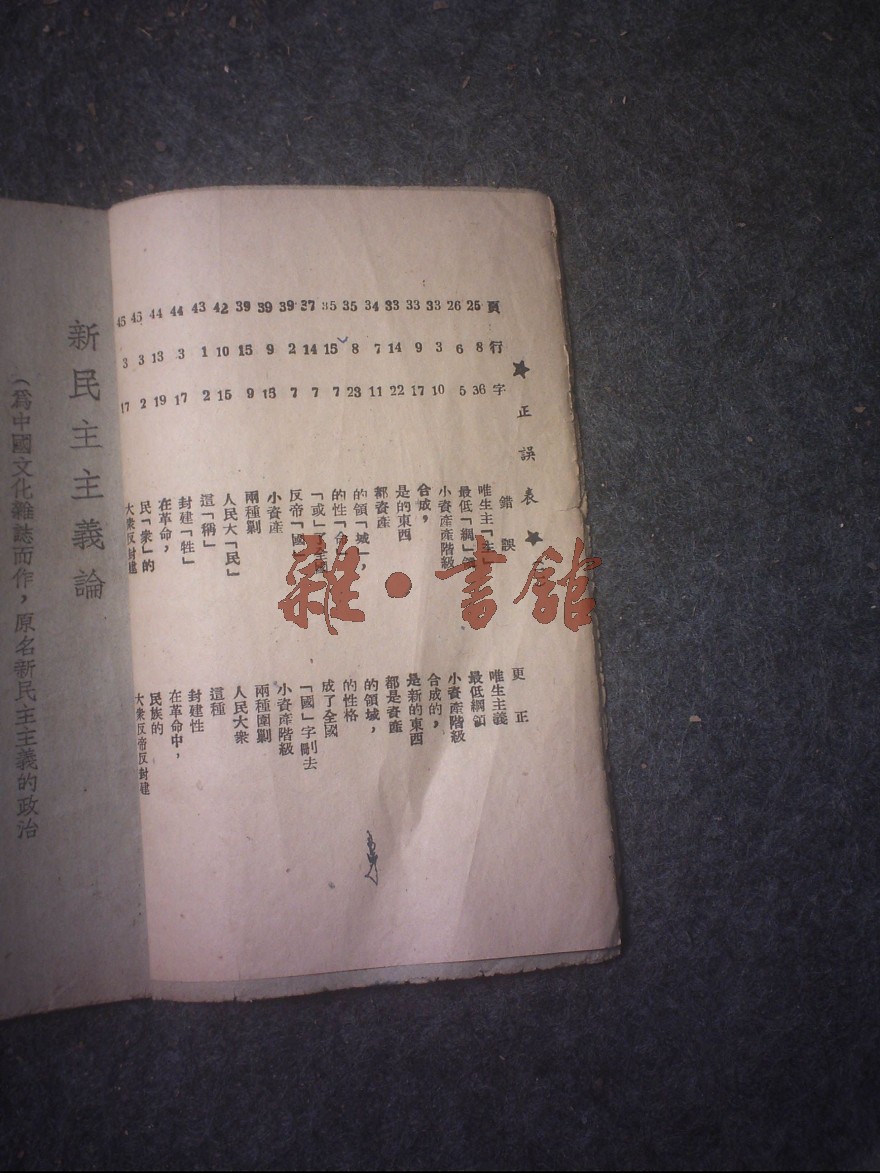 ★正誤表★
頁 行 字 錯誤 更正
25 8 36 唯生主「生」 唯生主義
26 6 5 最低「綱」領 最低綱領
33 3 10 小資產產階級 小資產階級
33 9 17 合成， 合成的，
33 14 22 是的東西 是新的東西
34 7 11 都資產 都是資產
35 8 23 的領「城」， 的領域，
35 15 7 的性「合」 的性格
37 14 7 「或」了全國 成了全國
39 2 7 反帝「國」 「國」字刪去
39 9 15 小資產 小資產階級
39 15 9 兩種剿 兩種圍剿
42 10 15 人民大「民」 人民大衆
43 1 2 這「稱」 這種
44 3 17 封建「牲」 封建性
44 13 19 在革命， 在革命中，
45 3 2 民「衆」的 民族的
45 3 17 大衆反封建 大衆反帝反封建
新民主主義論
（爲中國文化雜誌而作，原名新民主主義的政治
雜·書館